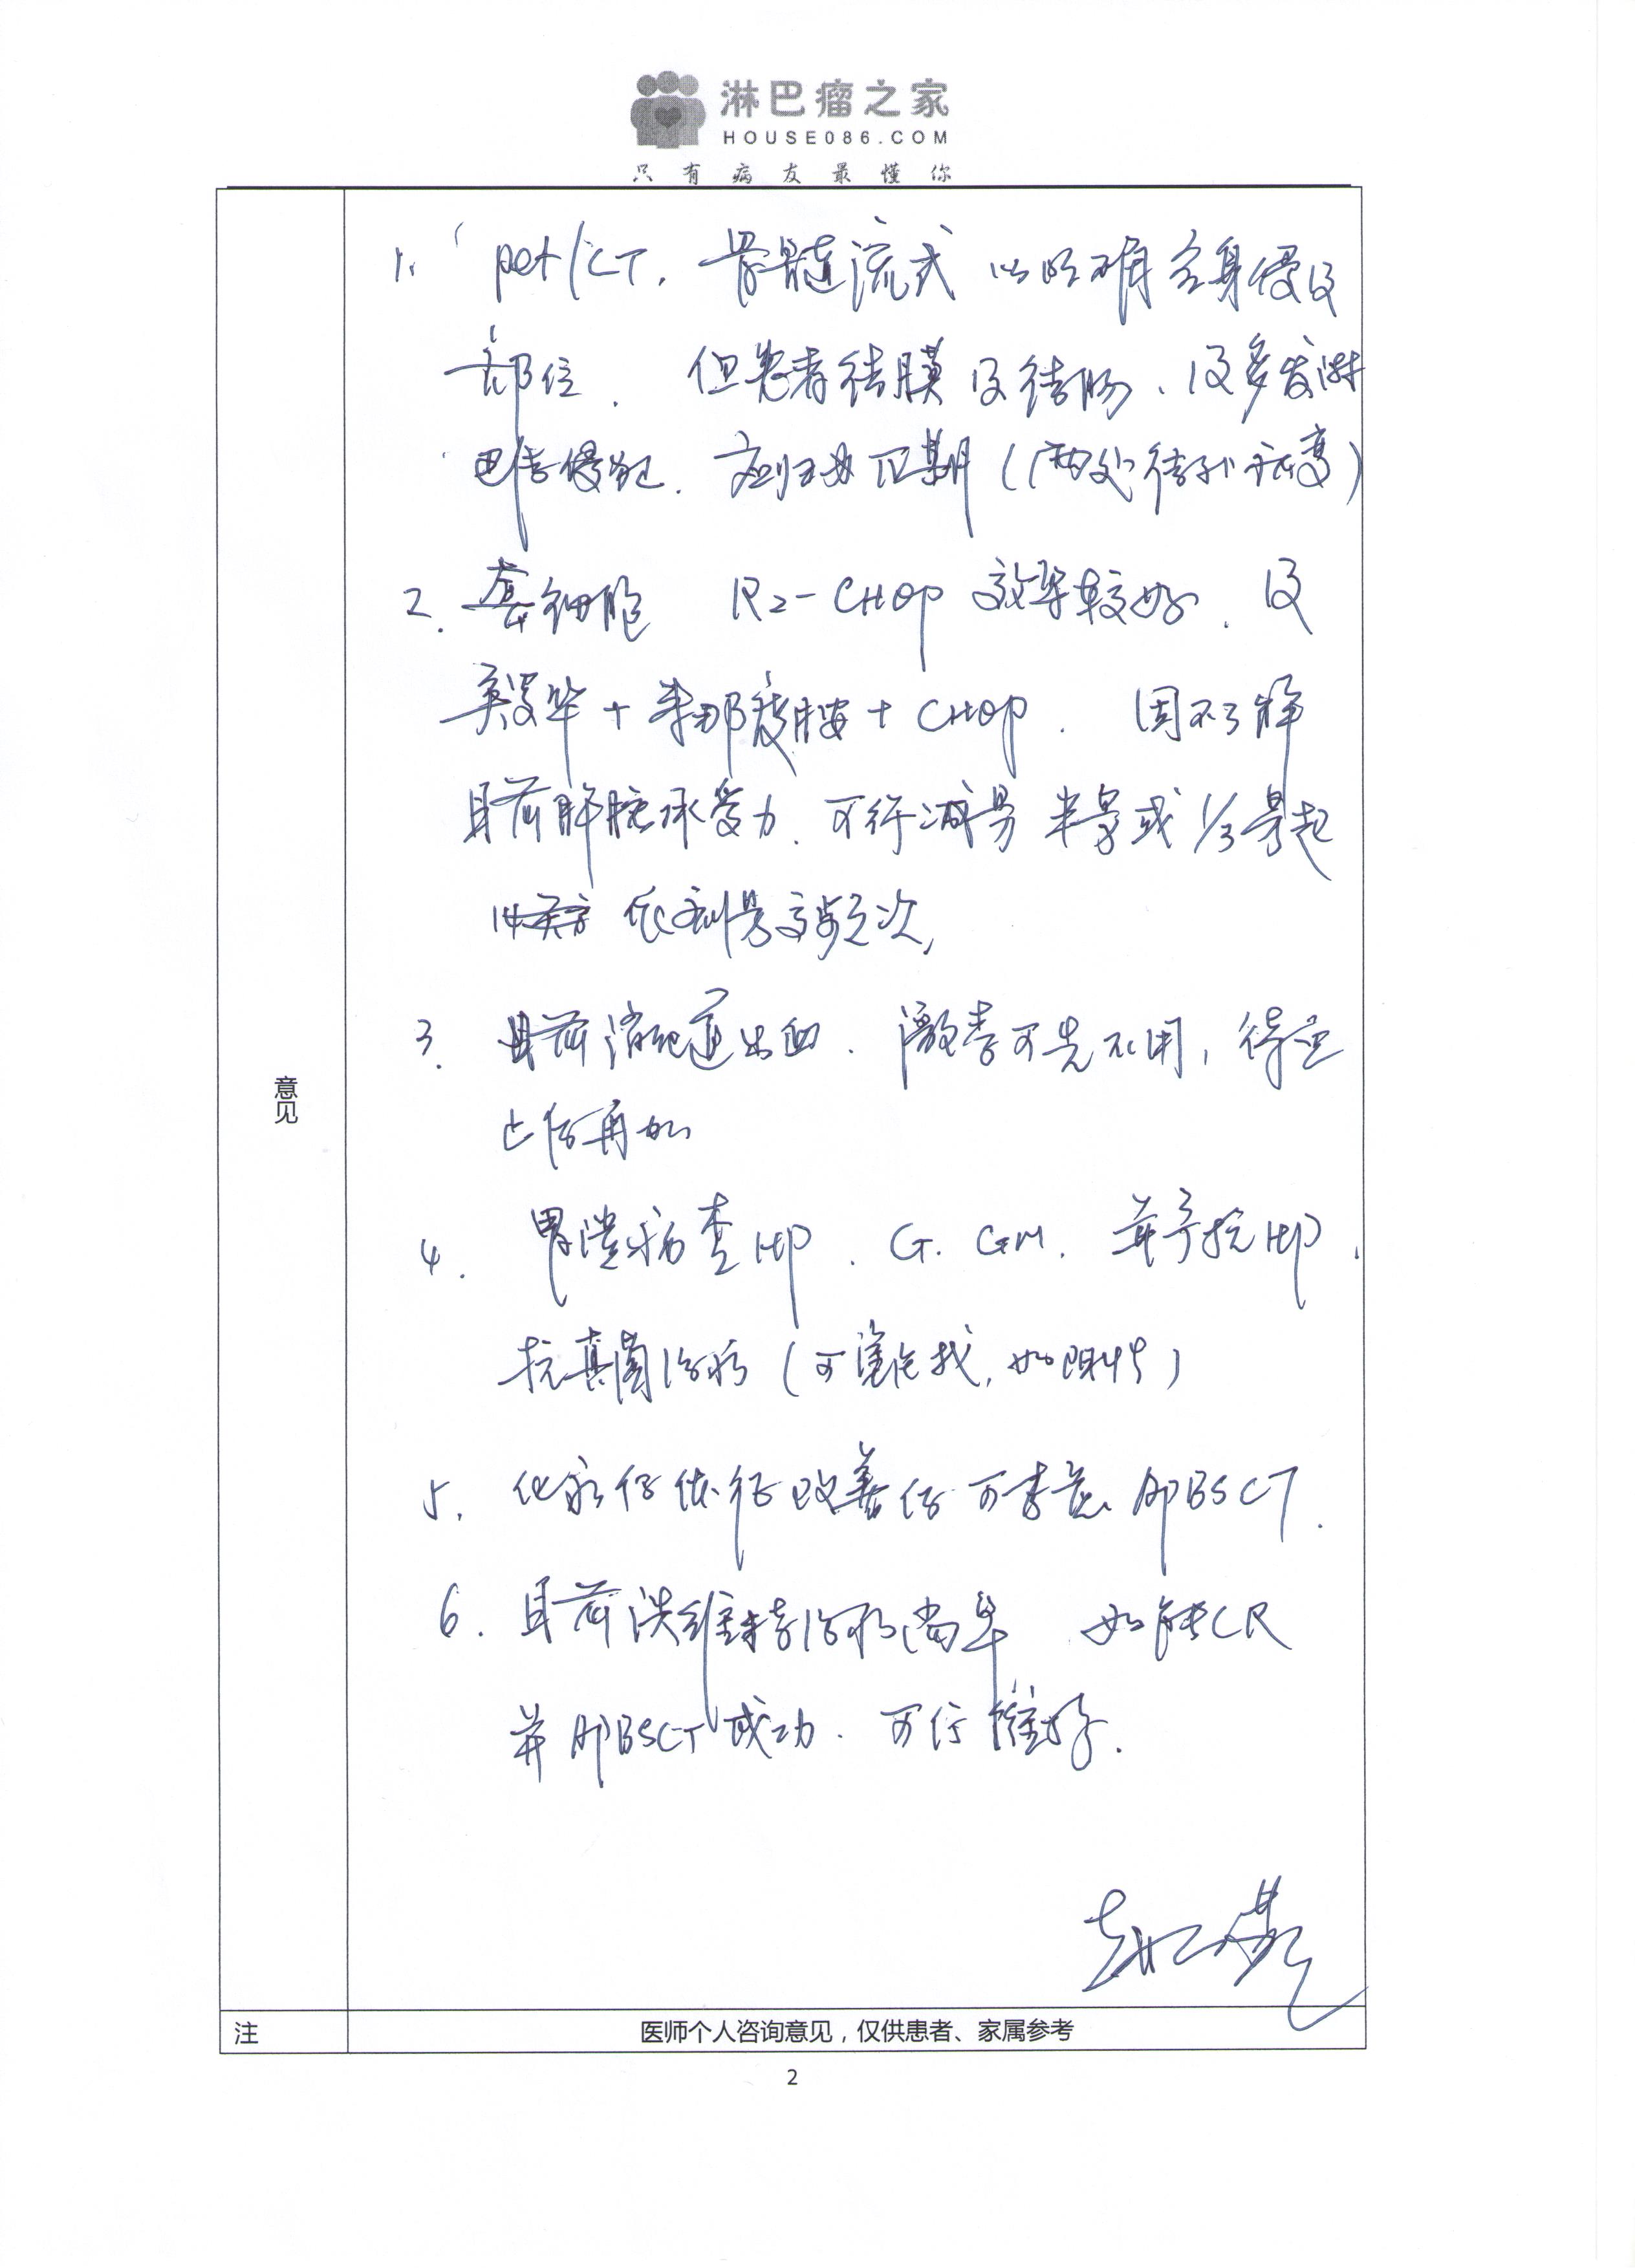 淋巴瘤之家
HOUSE086.COM
只有病友最懂你
1. pet/CT. 骨髓流式 以明确全身侵及
部位. 但患者结膜及结肠、及多发淋
巴结侵犯. 应归为IV期(两处结外病变)
2. 套细胞 R2-CHOP 效果较好. 及
美罗华+来那度胺+CHOP. 因不了解
目前肿瘤承受力. 可行减量 半量或1/3量起
低剂量多频次.
3. 目前消化道出血. 激素可先不用, 待血
止后再加
4. 胃溃疡查HP. G. GM. 并予抗HP.
抗真菌治疗(可, 如阳性)
5. 化疗后体征改善后可考虑APBSCT.
6. 目前谈维持治疗尚早 如能CR
并APBSCT成功. 可行维持.
意见
注
医师个人咨询意见，仅供患者、家属参考
2